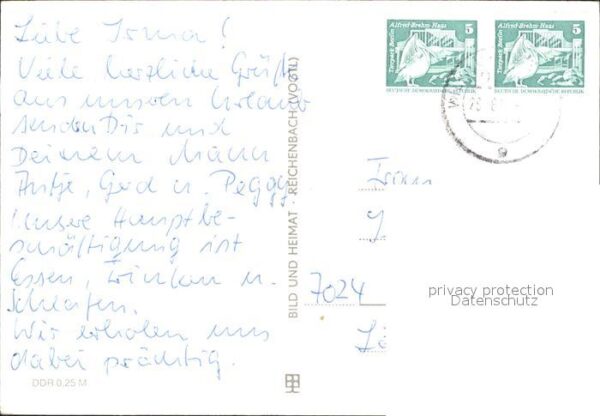 Liebe Irma!
Viele herzliche Grüße
aus unserem Urlaub
senden Dir und
Deinem Mann
Antje, Gerd u. Peggy.
Unsere Hauptbe-
schäftigung ist
Essen, Trinken u.
Schlafen.
Wir erholen uns
dabei prächtig.
DDR 0,25 M
BILD UND HEIMAT REICHENBACH (VOGTL)
Alfred-Brehm-Haus
Tierpark Berlin
5
DEUTSCHE DEMOKRATISCHE REPUBLIK
Alfred-Brehm-Haus
Tierpark Berlin
5
DEUTSCHE DEMOKRATISCHE REPUBLIK
7024
privacy protection
Datenschutz